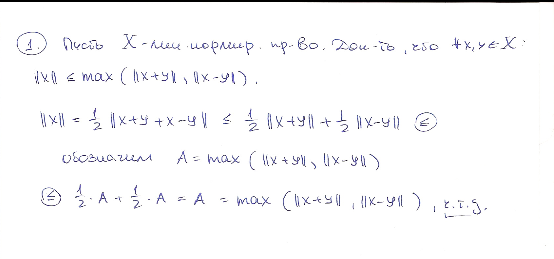 1. Пусть X-лин. нормир. пр-во. Док-ть, что ∀x,y∈X:
||x|| ≤ max (||x+y||, ||x-y||).
||x|| = 1/2 ||x+y+x-y|| ≤ 1/2 ||x+y|| + 1/2 ||x-y|| ≤
обозначим A = max (||x+y||, ||x-y||)
≤ 1/2 · A + 1/2 · A = A = max (||x+y||, ||x-y||), ч.т.д.